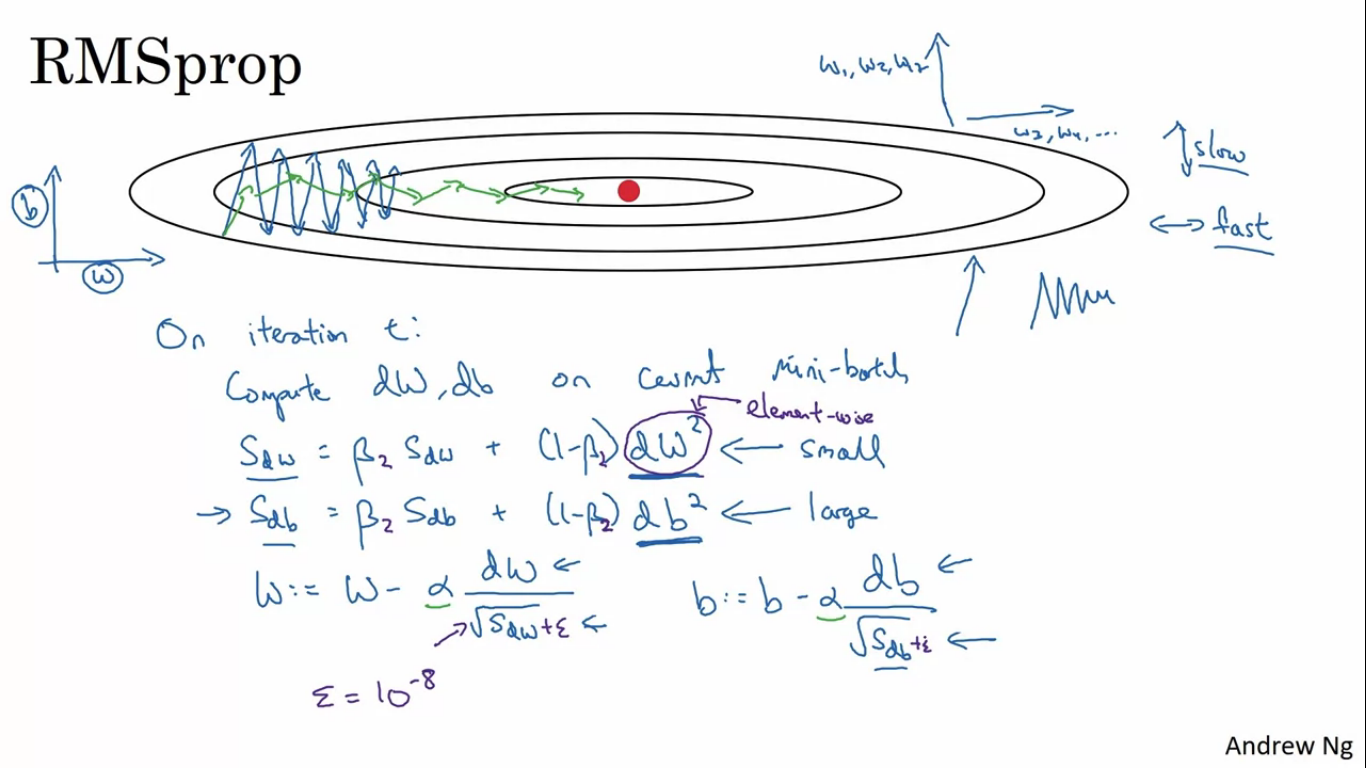 RMSprop
w₁, w₂, w₂
w₃, w₄, ...
slow
fast
b
w
On iteration t:
Compute dW, db on current mini-batch
element-wise
S_dw = β₂ S_dw + (1-β₂) dW² ← small
→ S_db = β₂ S_db + (1-β₂) db² ← large
W := W - α dW / √S_dw + ε ← b := b - α db / √S_db + ε ←
ε = 10⁻⁸
Andrew Ng